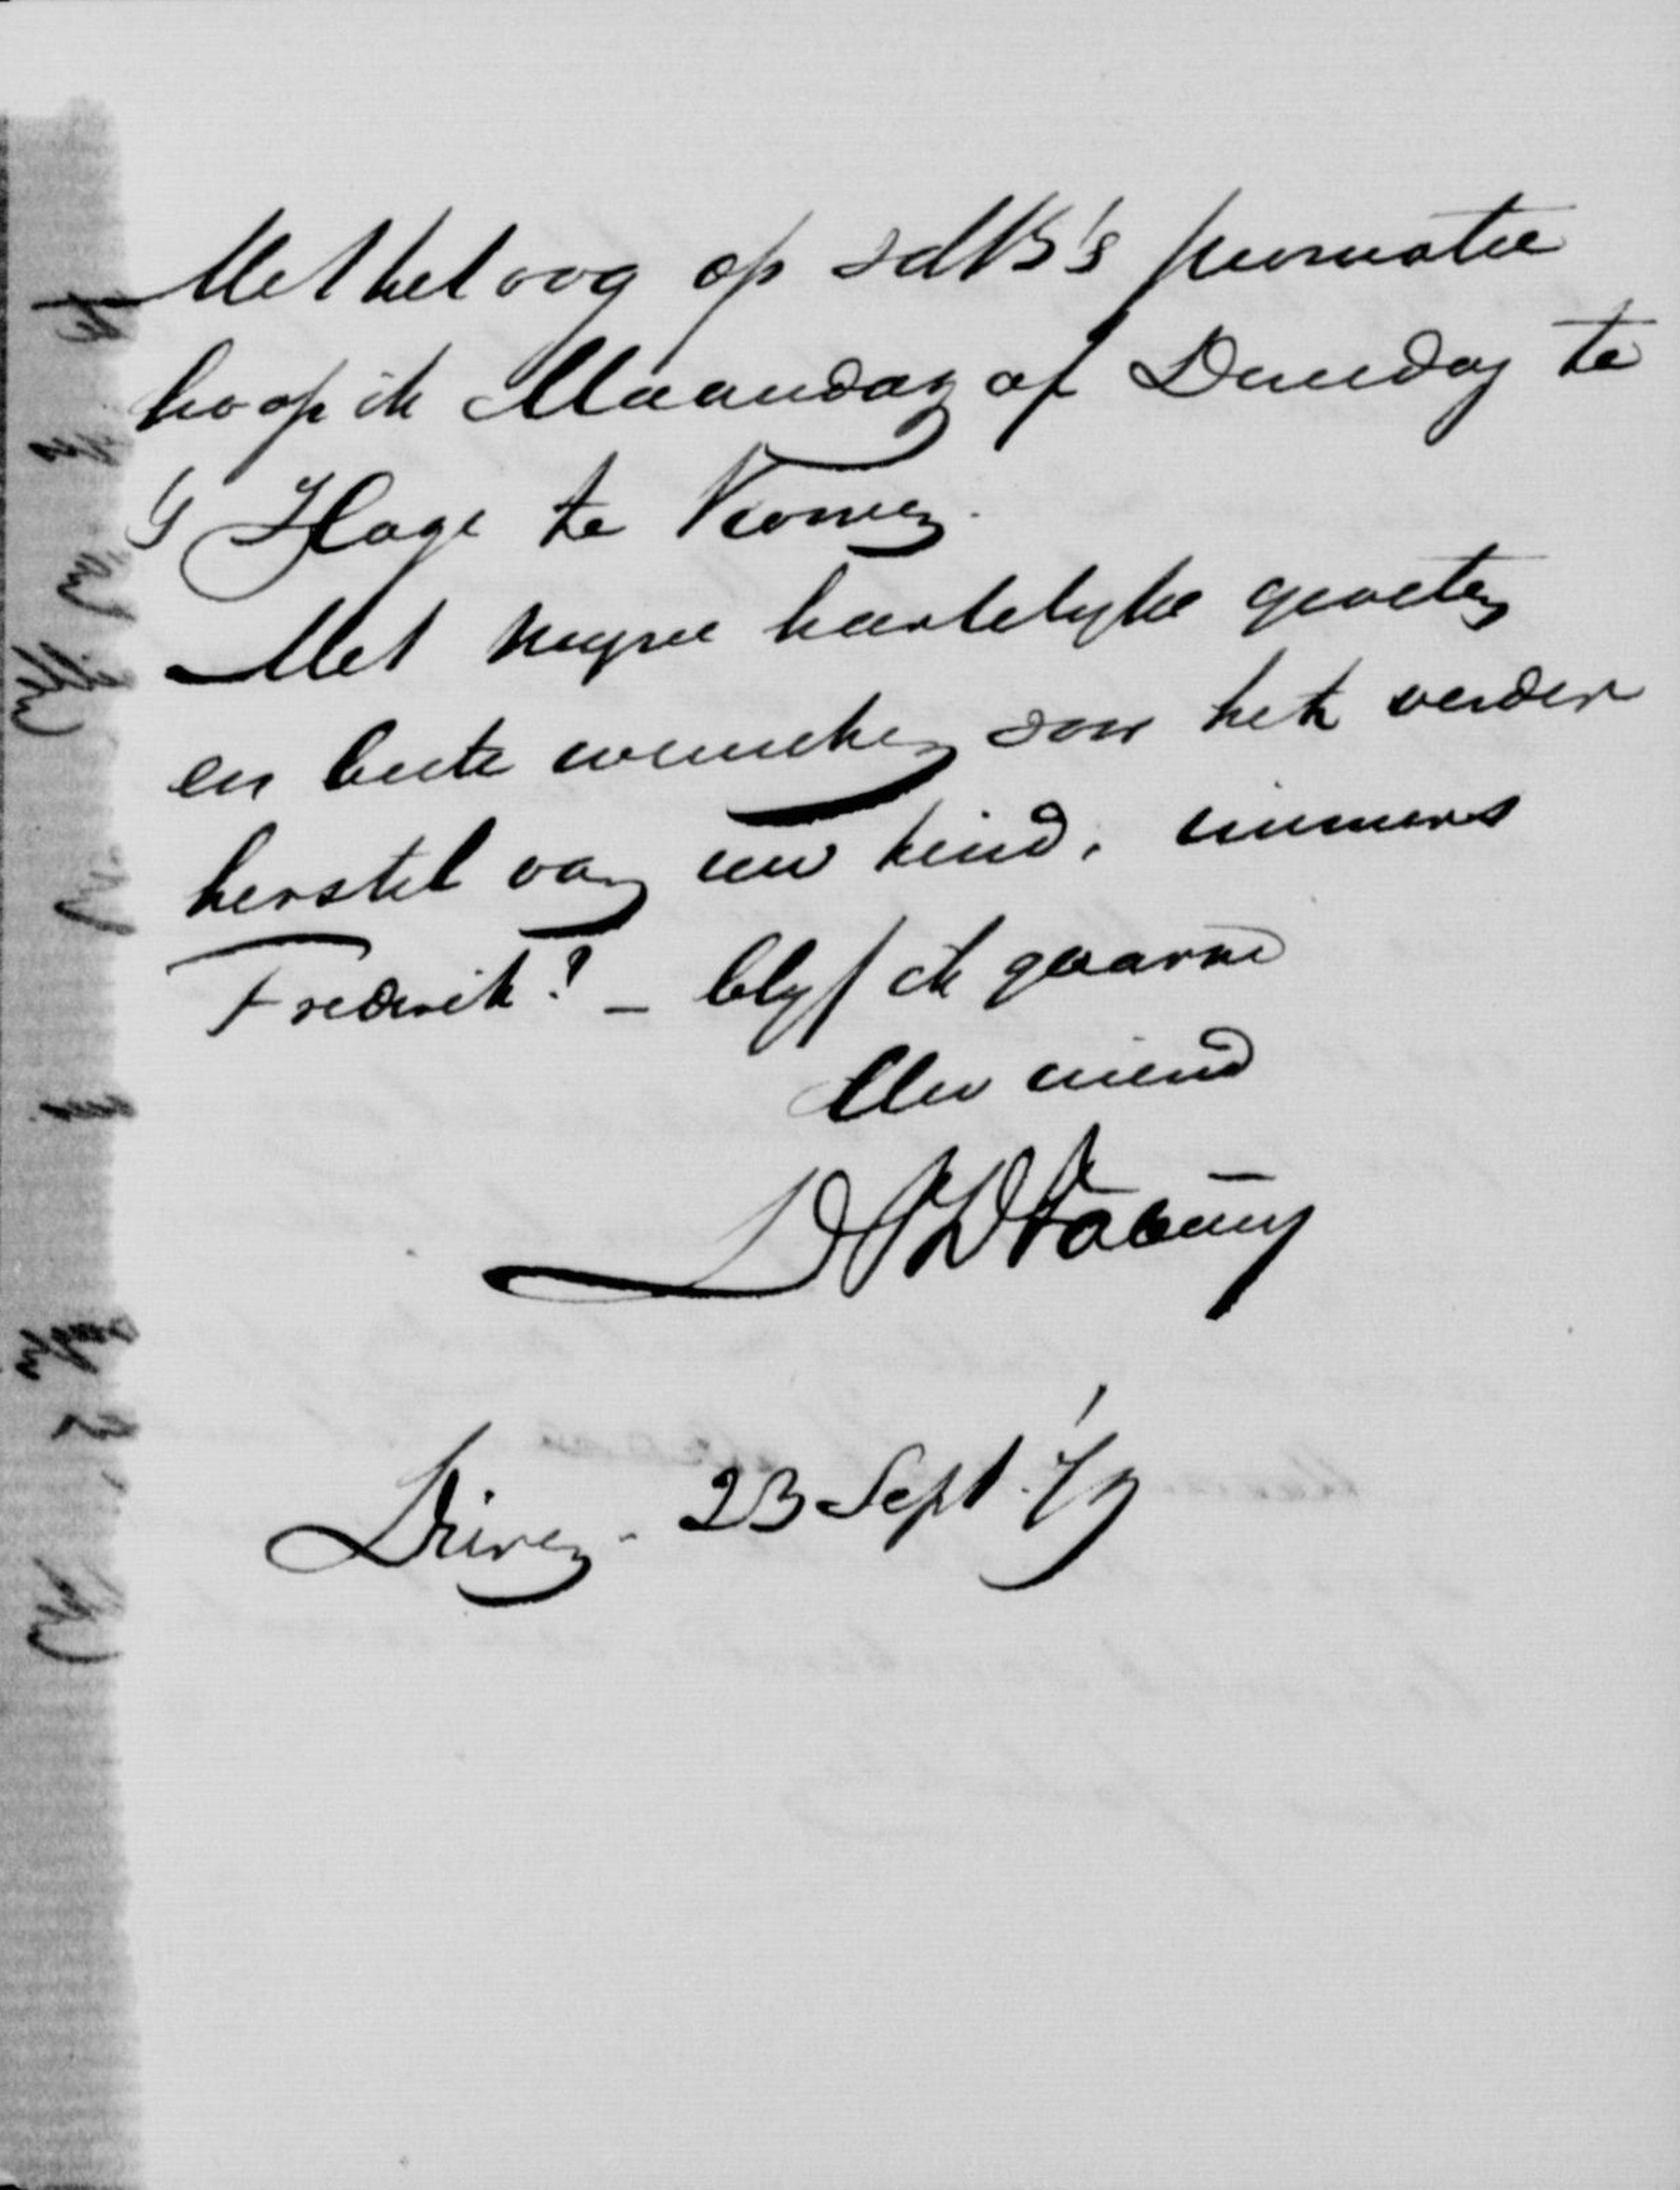 Met het oog op
hoop ik Maandag of Dinsdag te
's Hage te komen.
Met mijne hartelijke groeten
en beste wenschen voor het verder
herstel van uw kind, immers
Frederik? – blijf ik gaarne
Uw vriend
DPD Fabius
Driebergen. 23 Sept.